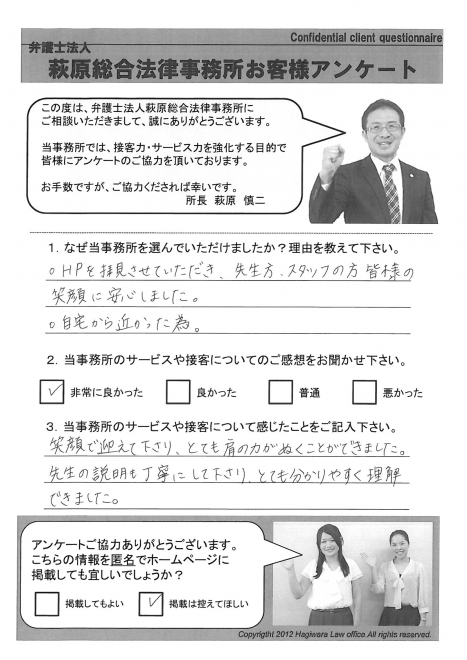 Confidential client questionnaire
弁護士法人
萩原総合法律事務所お客様アンケート
この度は、弁護士法人萩原総合法律事務所に
ご相談いただきまして、誠にありがとうございます。
当事務所では、接客力・サービス力を強化する目的で
皆様にアンケートのご協力を頂いております。
お手数ですが、ご協力くだされば幸いです。
所長 萩原 慎二
1．なぜ当事務所を選んでいただけましたか？理由を教えて下さい。
○HPを拝見させていただき、先生方、スタッフの方皆様の
笑顔に安心しました。
○自宅から近かった為。
2．当事務所のサービスや接客についてのご感想をお聞かせ下さい。
✓ 非常に良かった 良かった 普通 悪かった
3．当事務所のサービスや接客について感じたことをご記入下さい。
笑顔で迎えて下さり、とても肩の力がぬくことができました。
先生の説明も丁寧にして下さり、とても分かりやすく理解
できました。
アンケートご協力ありがとうございます。
こちらの情報を匿名でホームページに
掲載しても宜しいでしょうか？
掲載してもよい ✓ 掲載は控えてほしい
Copyrigtht 2012 Hagiwara Law office.All rights reserved.